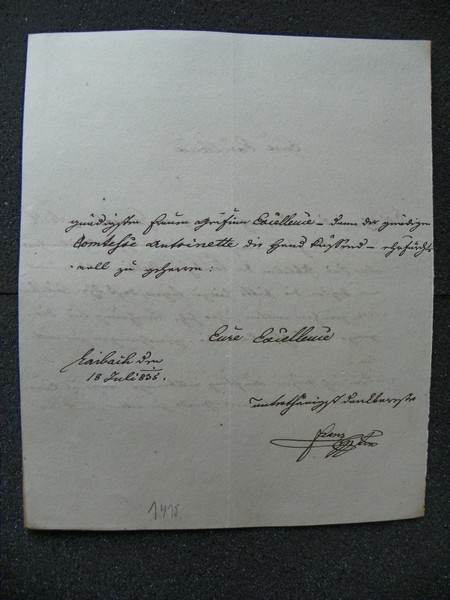 gnädigsten Frauen Gräfinn Excellence – dann der gnädigen
Comtesse Antoinette die Hand küssend – ehrfurchts
voll zu geharren:
Eure Excellence
Laibach den
18 Juli 835.
unterthänigst dankbarster
Franz
1418